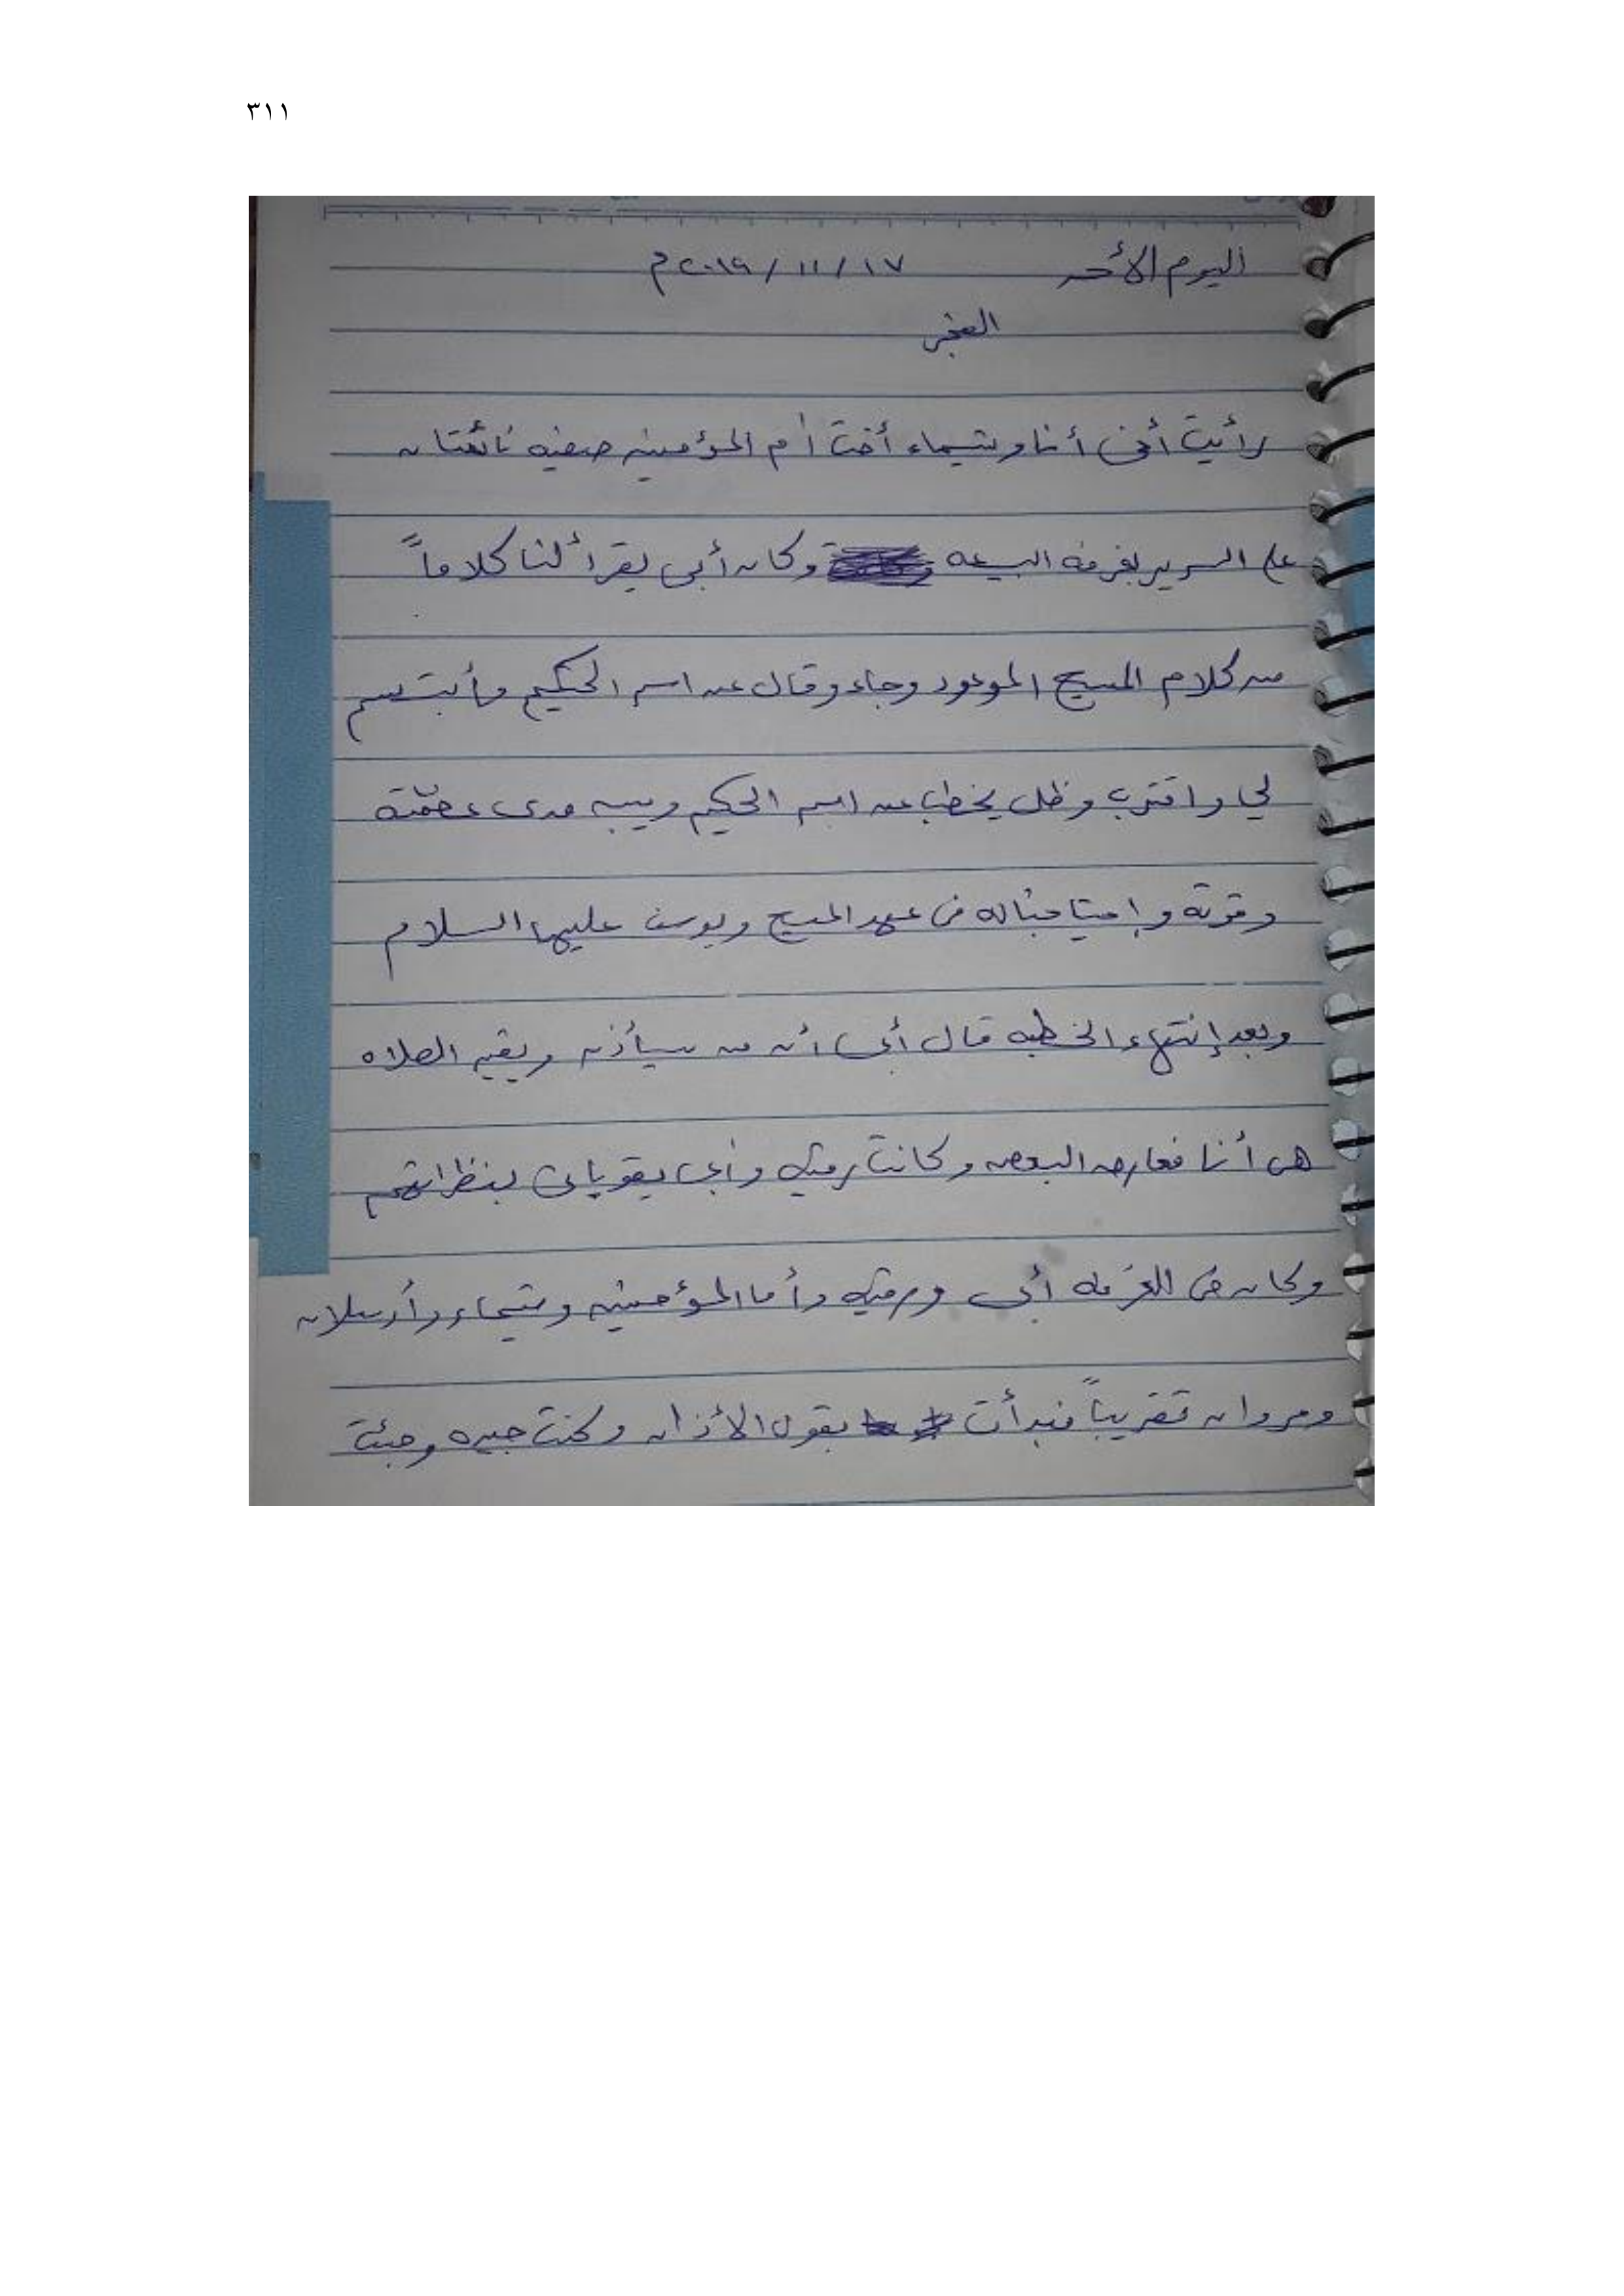 ٣١١
اليوم الأحد ١٧ / ١١ / ٢٠١٩م
الفجر
رأيت أني أنا وشيماء أخت أم المؤمنين صفيه نائمتان
على السرير بغرفة البيعه وكان أبي يقرأ لنا كلاماً
من كلام المسيح الموعود وجاء وقال عن اسم الحكيم وأبتسم
لي واقترب وظل يخطب عن اسم الحكيم ويبين مدى عظمته
وقوته وإحتياجنا له في عهد المسيح ويوسف عليهما السلام
وبعد إنتهاء الخطبه قال أبي أن من سيأذن ويقيم الصلاه
هي أنا فعارض البعض وكانت رقيه وأبي يقوياني بنظراتهم
وكان في الغرفه أبي ورقيه وأما المؤمنين وشيماء وأرسلان
ومروان تقريباً فبدأت بقول الأذان وكنت وجئت